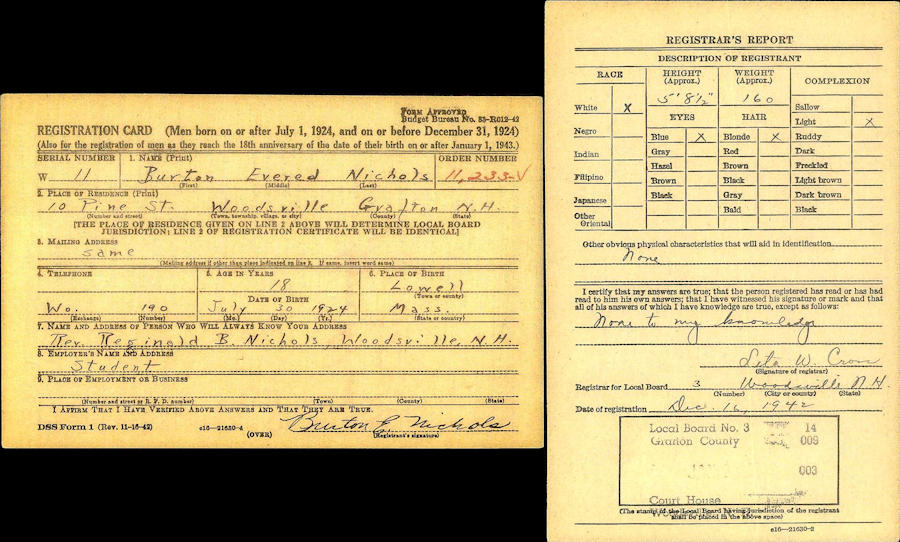 FORM APPROVED
Budget Bureau No. 33-R012-42
REGISTRATION CARD (Men born on or after July 1, 1924, and on or before December 31, 1924)
(Also for the registration of men as they reach the 18th anniversary of the date of their birth on or after January 1, 1943.)
SERIAL NUMBER 1. NAME (Print) ORDER NUMBER
W 11 Burton Evered Nichols 11,233-V
(First) (Middle) (Last)
2. PLACE OF RESIDENCE (Print)
10 Pine St. Woodsville Grafton N.H.
(Number and street) (Town, township, village, or city) (County) (State)
[THE PLACE OF RESIDENCE GIVEN ON LINE 2 ABOVE WILL DETERMINE LOCAL BOARD
JURISDICTION; LINE 2 OF REGISTRATION CERTIFICATE WILL BE IDENTICAL]
3. MAILING ADDRESS
same
(Mailing address if other than place indicated on line 2. If same, insert word same)
4. TELEPHONE 5. AGE IN YEARS 6. PLACE OF BIRTH
18 Lowell
DATE OF BIRTH (Town or county)
Wo. 190 July 30 1924 Mass.
(Exchange) (Number) (Mo.) (Day) (Yr.) (State or country)
7. NAME AND ADDRESS OF PERSON WHO WILL ALWAYS KNOW YOUR ADDRESS
Rev. Reginald B. Nichols, Woodsville, N.H.
8. EMPLOYER'S NAME AND ADDRESS
Student
9. PLACE OF EMPLOYMENT OR BUSINESS
(Number and street or R. F. D. number) (Town) (County) (State)
I AFFIRM THAT I HAVE VERIFIED ABOVE ANSWERS AND THAT THEY ARE TRUE.
DSS Form 1 (Rev. 11-16-42) c16-21630-4 Burton E. Nichols
(OVER) (Registrant's signature)
REGISTRAR'S REPORT
DESCRIPTION OF REGISTRANT
RACE HEIGHT (Approx.) WEIGHT (Approx.) COMPLEXION
5' 8½" 160
White X Sallow
EYES HAIR Light X
Negro Blue X Blonde X Ruddy
Gray Red Dark
Indian Hazel Brown Freckled
Filipino Brown Black Light brown
Japanese Black Gray Dark brown
Other Oriental Bald Black
Other obvious physical characteristics that will aid in identification
None
I certify that my answers are true; that the person registered has read or has had
read to him his own answers; that I have witnessed his signature or mark and that
all of his answers of which I have knowledge are true, except as follows:
None to my knowledge
W.
(Signature of registrar)
Registrar for Local Board 3 Woodsville N.H.
(Number) (City or county) (State)
Date of registration Dec. 16, 1942
Local Board No. 3 14
Grafton County 009
003
Court House
(The stamp of the Local Board having jurisdiction of the registrant
shall be placed in the above space)
c16-21630-2